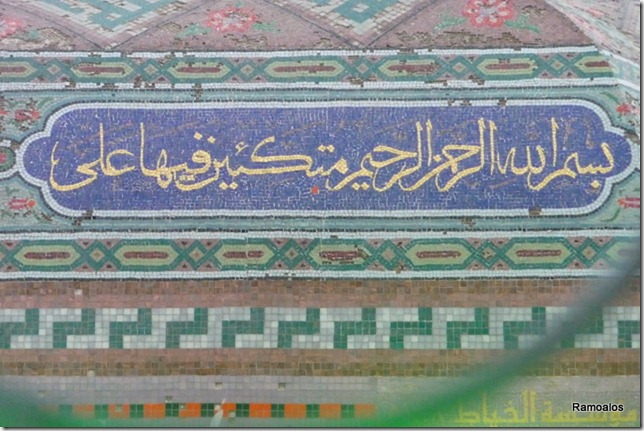 بسم الله الرحمن الرحيم متكئين فيها على
مؤسسة الخياط
Ramoalos